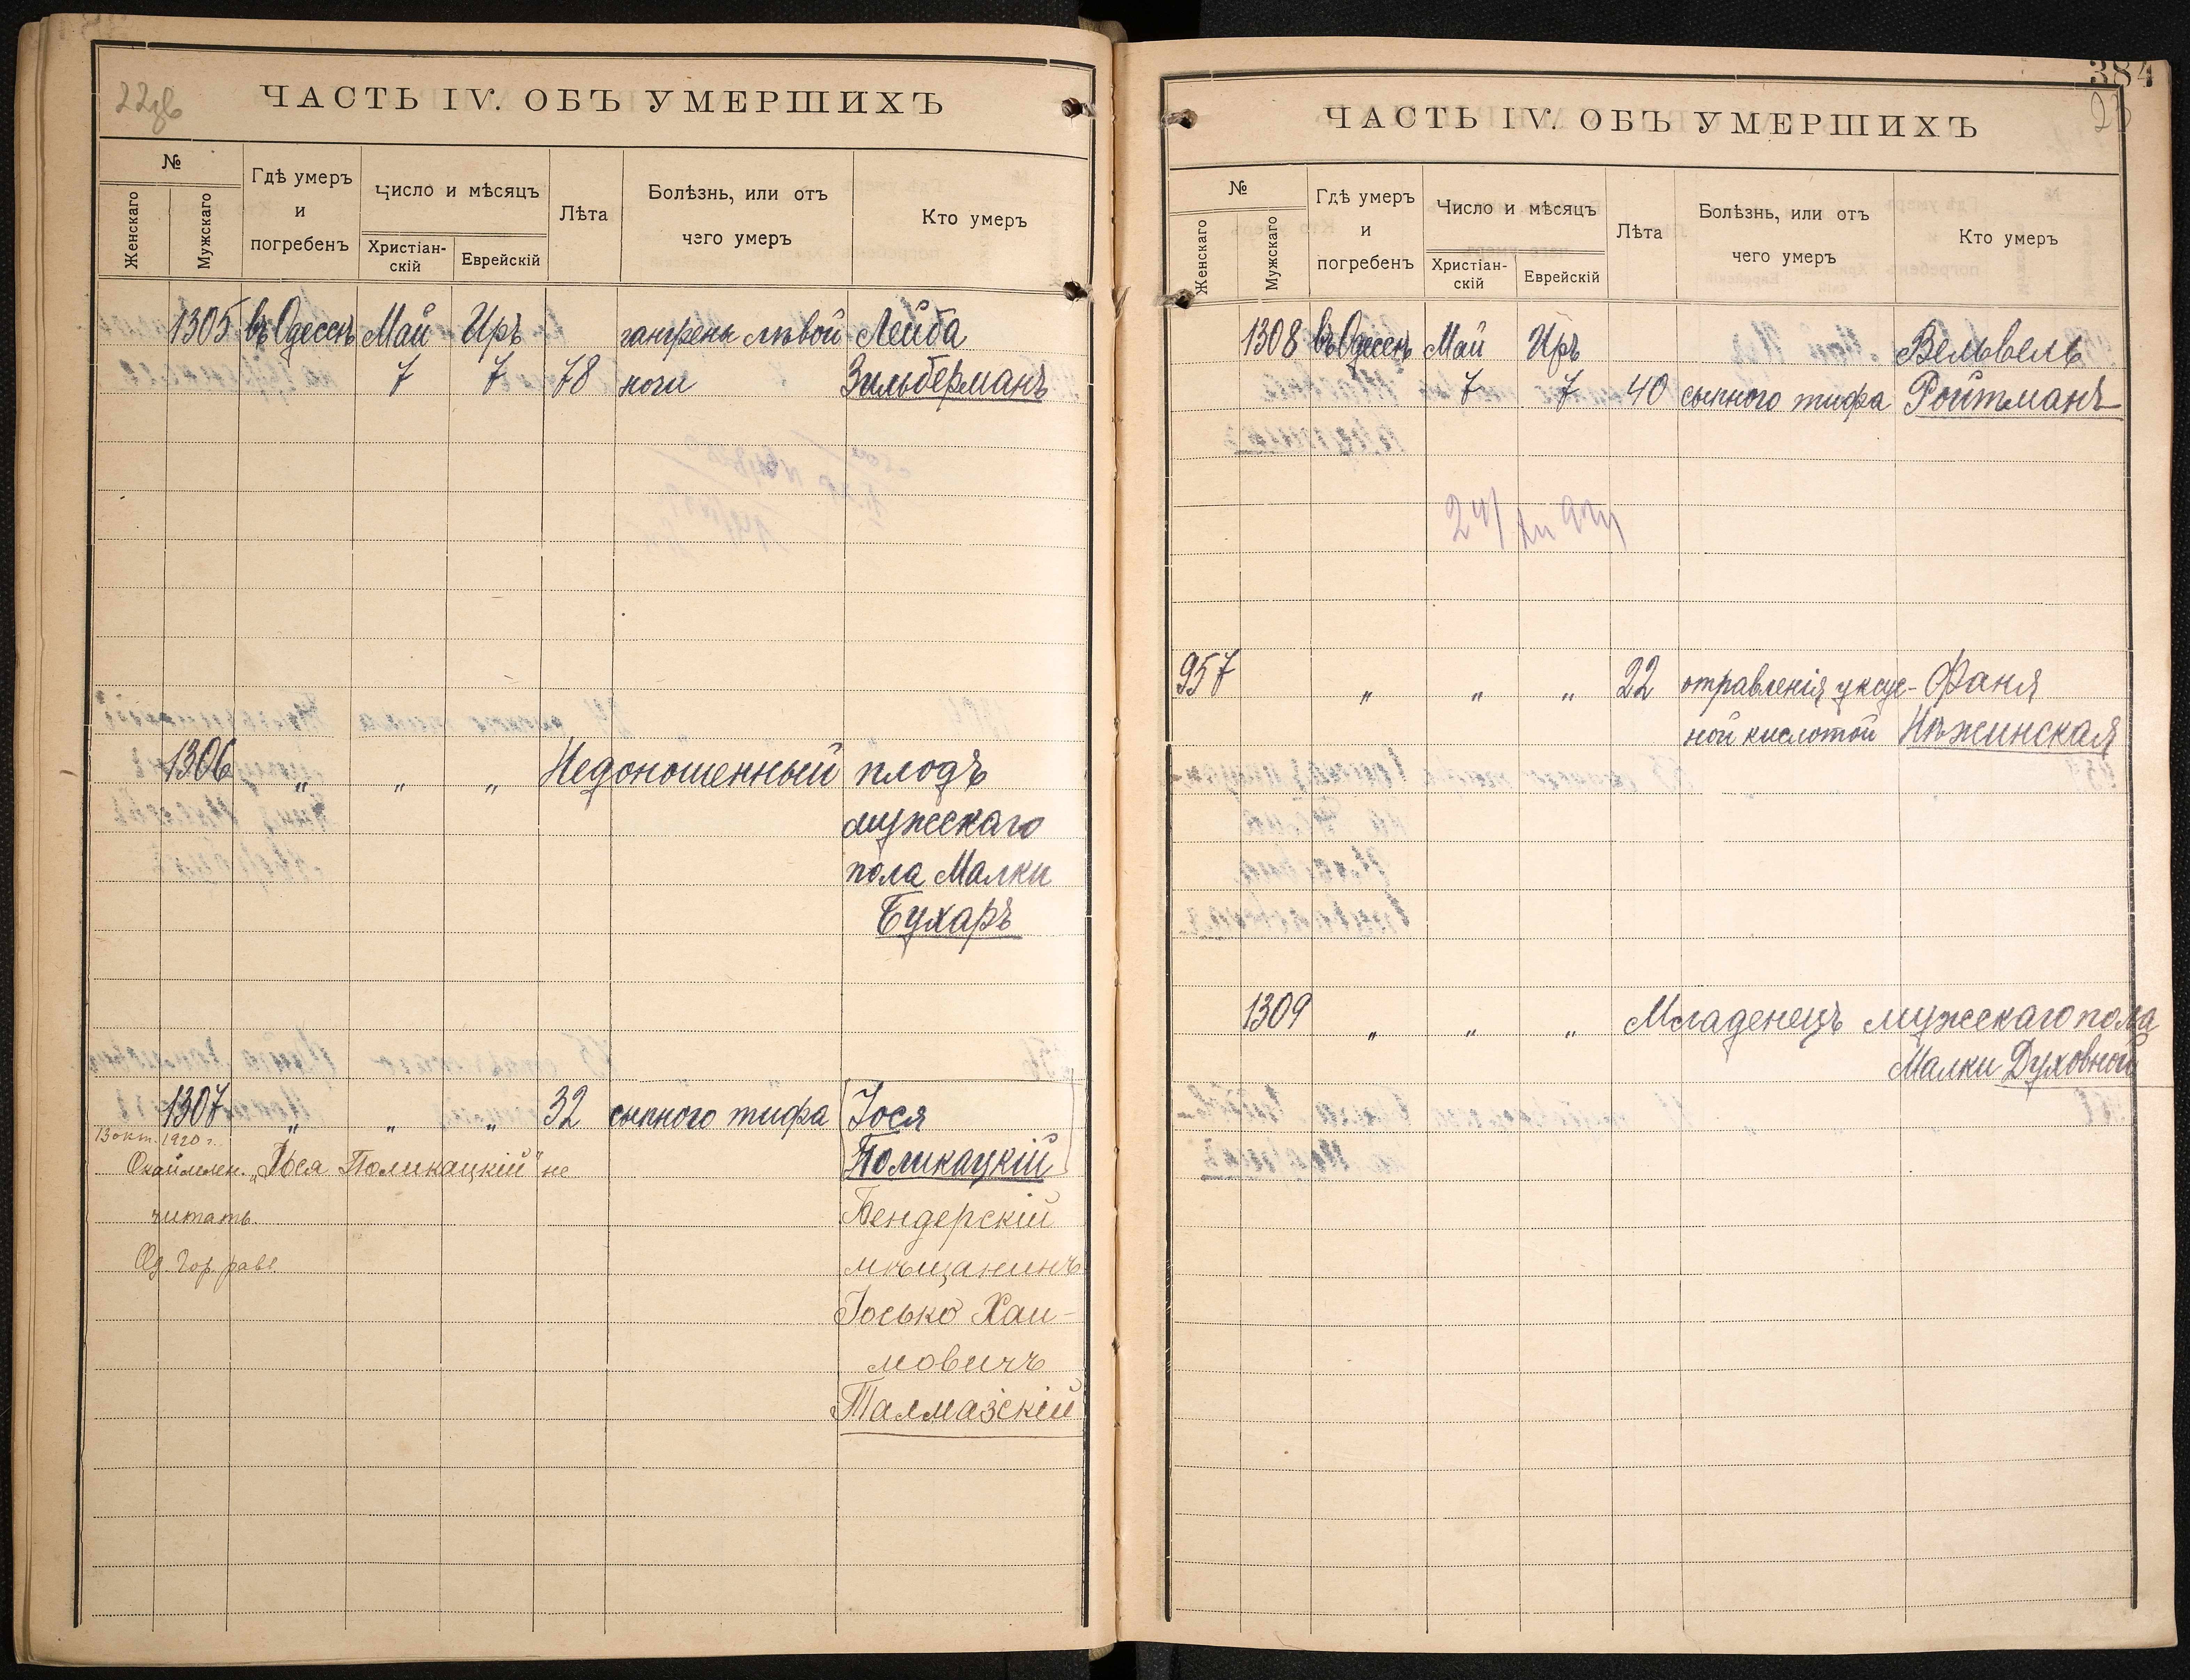 ЧАСТЬ IV. ОБЪ УМЕРШИХЪ
№
Женскаго
Мужскаго
Гдѣ умеръ
и
погребенъ
Число и мѣсяцъ
Христіан-
скій
Еврейскій
Лѣта
Болѣзнь, или отъ
чего умеръ
Кто умеръ
1305 въ Одессѣ Май Иръ гангрены лѣвой Лейба
7 7 78 ноги Зильберманъ
1306 " " " Недоношенный плодъ
мужескаго
пола Малки
Бухаръ
1307 " " " 32 сыпного тифа Іося
13 окт. 1920 г.
Окаймлен. „Іося Поликацкій" не Поликацкій
читать. Бендерскій
Од. Гор. равв. мѣщанинъ
Іосько Хаи-
мовичъ
Талмазскій
384
23
ЧАСТЬ IV. ОБЪ УМЕРШИХЪ
№
Женскаго
Мужскаго
Гдѣ умеръ
и
погребенъ
Число и мѣсяцъ
Христіан-
скій
Еврейскій
Лѣта
Болѣзнь, или отъ
чего умеръ
Кто умеръ
1308 въ Одессѣ Май Иръ Вельвель
7 7 40 сыпного тифа Ройтманъ
957 " " " 22 отравленія уксус- Фаня
ной кислотой Нѣжинская
1309 " " " Младенецъ мужескаго пола
Малки Духовной